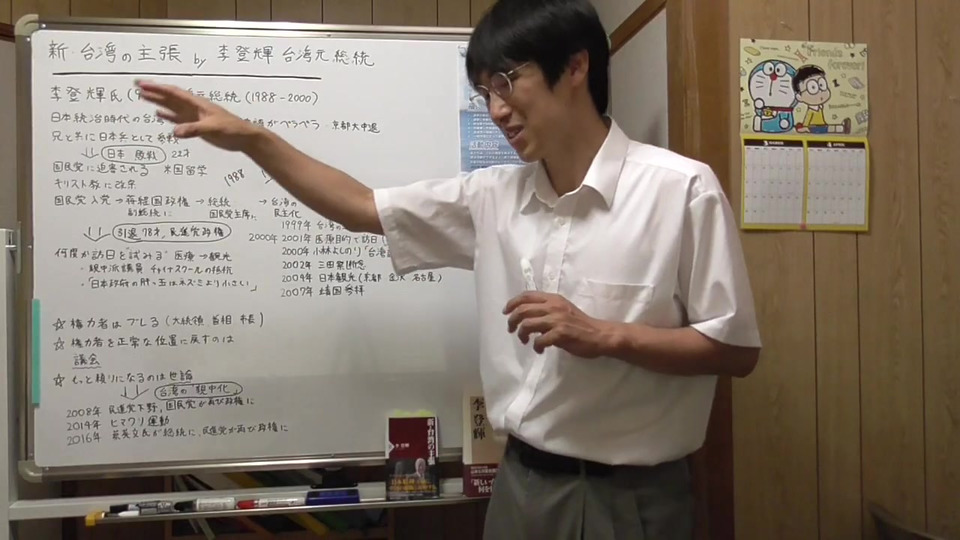 新・台湾の主張 by 李登輝 台湾元総統
李登輝氏 元総統 (1988-2000)
日本統治時代の台 がペラペラ 京都大中退
兄と共に日本兵として参戦
日本 敗戦 22才
国民党に迫害される 米国留学
1988
キリスト教に改宗
国民党入党→蒋経国政権→総統 →台湾の
副総統に 国民党主席に 民主化
1999年 台湾の
引退 78才, 民進党政権
2000年 2001年 医療目的で訪日
何度か訪日を試みる 医療→観光
2000年 小林よしのり「台湾
・親中派議員 チャイナスクールの抵抗
2002年 三田祭断念
・「日本政府の肝っ玉はネズミより小さい」
2004年 日本観光(京都 金沢 名古屋)
2007年 靖国参拝
☆権力者はブレる (大統領、首相 市長)
☆権力者を正常な位置に戻すのは
議会
☆もっと頼りになるのは世論
台湾の"親中化"
2008年 民進党下野, 国民党が再び政権に
2014年 ヒマワリ運動
2016年 蔡英文氏が総統に、民進党が再び政権に
新・台湾の主張
李登輝
Friends
forever!
3
4